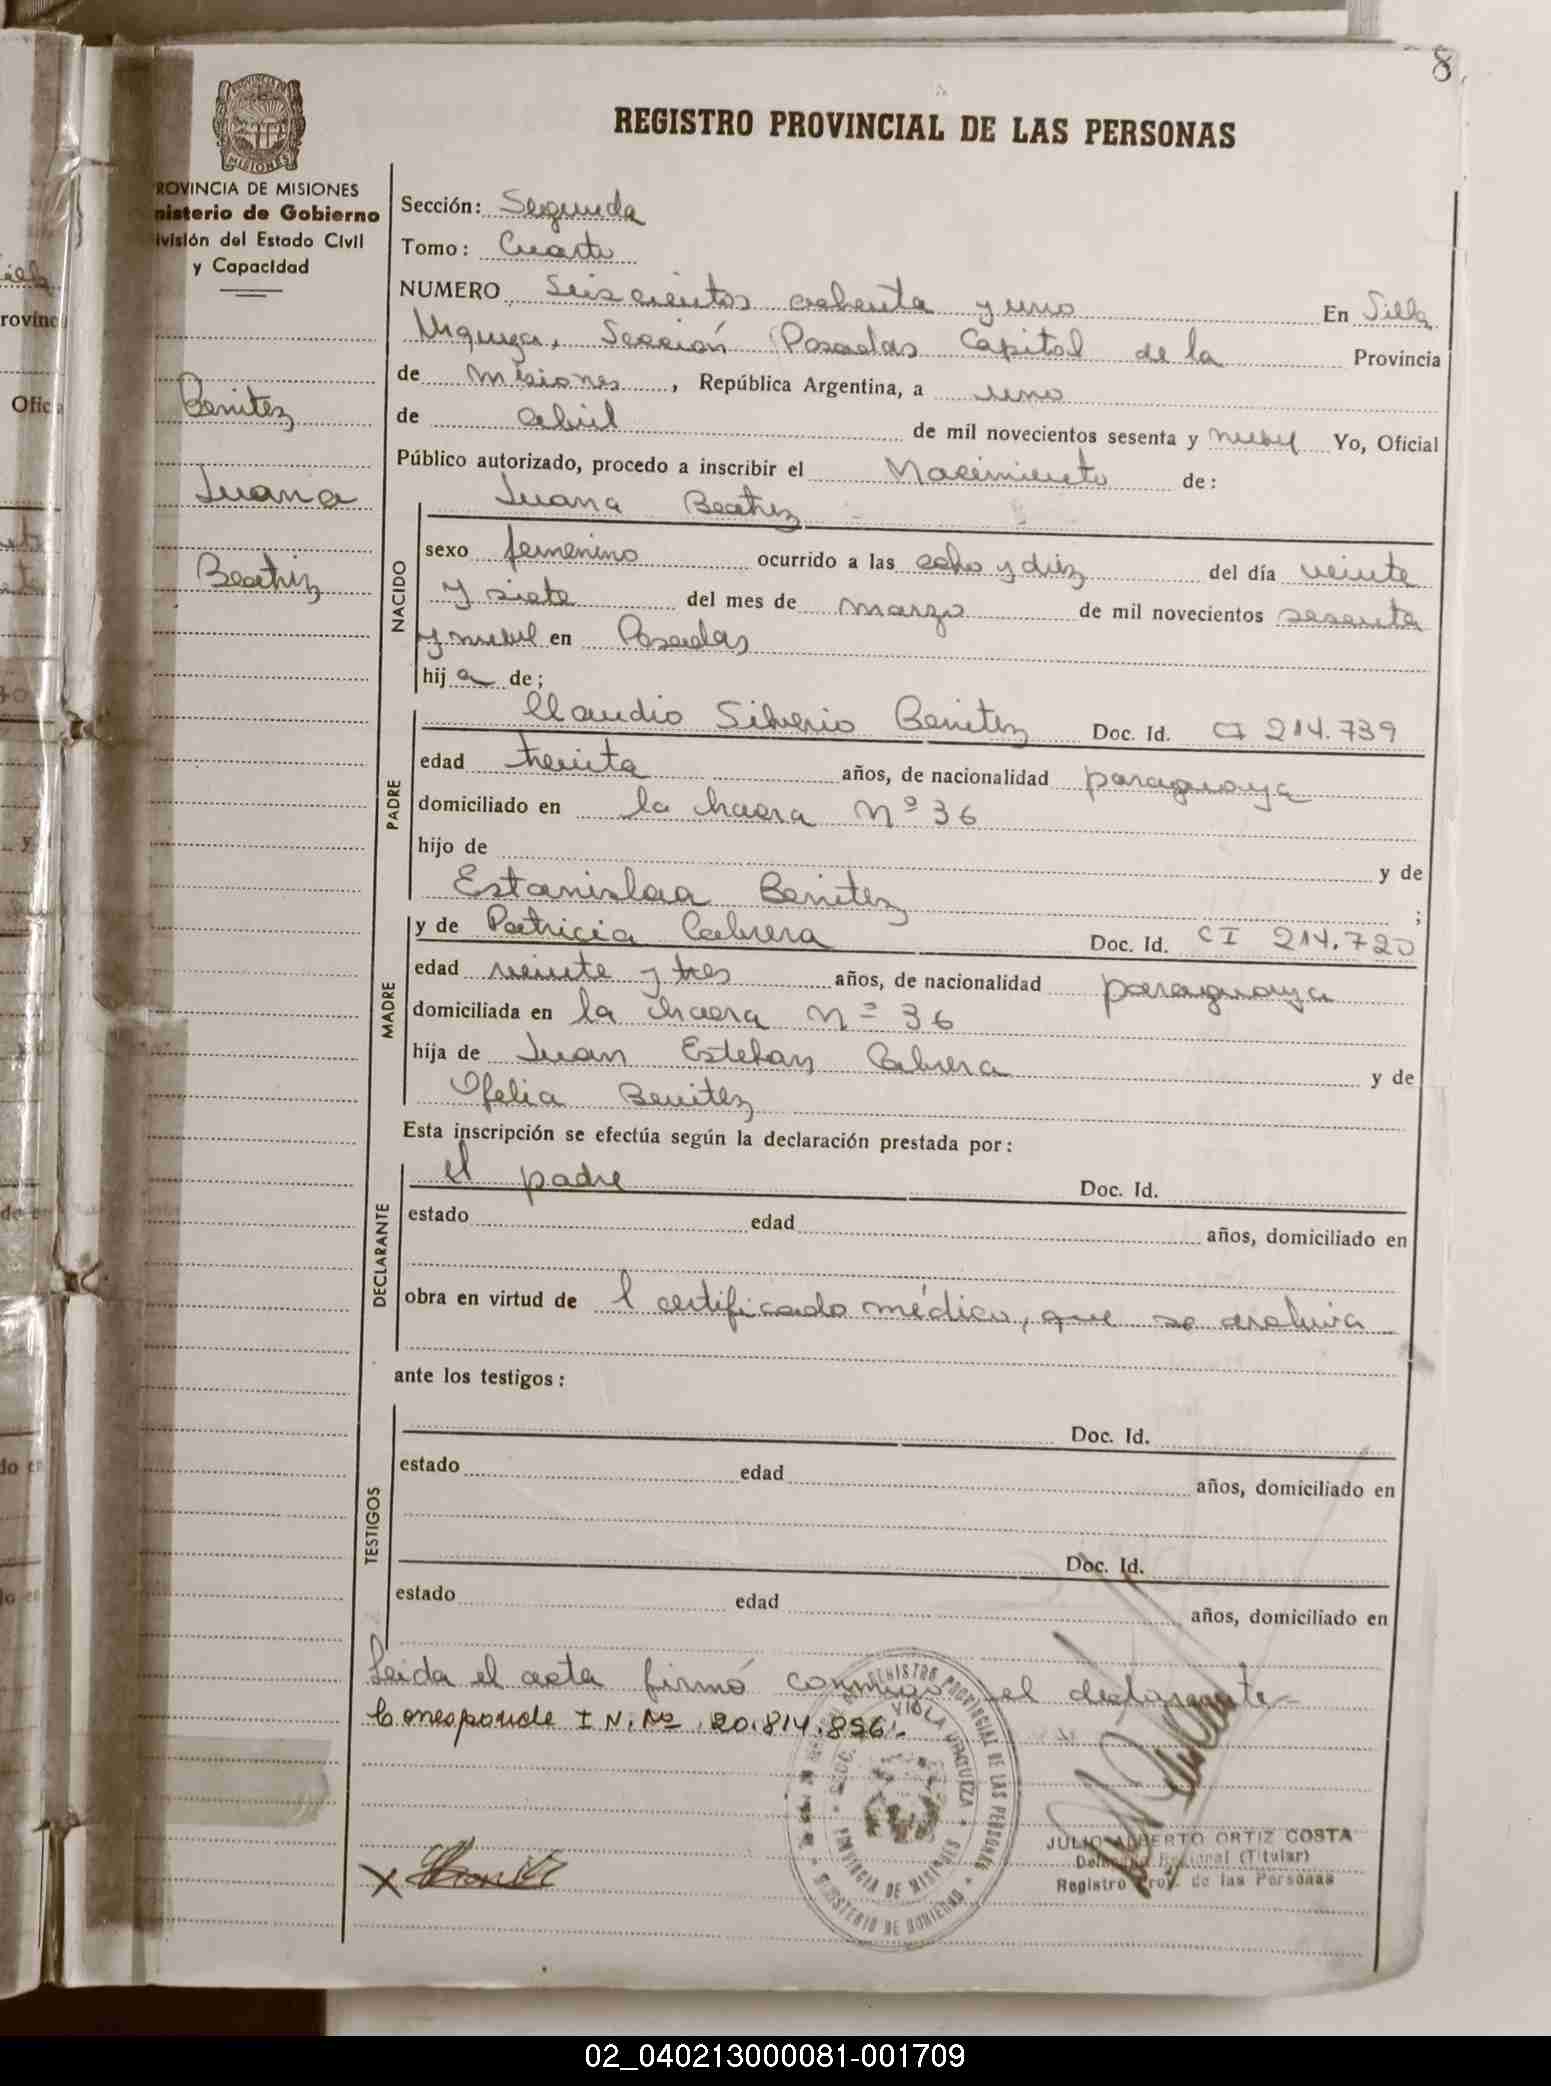 8
PROVINCIA DE
MISIONES
ROVINCIA DE MISIONES
nisterio de Gobierno
ivisión del Estado Civil
y Capacidad
Benitez
Juana
Beatriz
REGISTRO PROVINCIAL DE LAS PERSONAS
Sección: Segunda
Tomo: Cuarto
NUMERO Seiscientos ochenta y uno En Villa
Urquiza, Sección Posadas Capital de la Provincia
de Misiones, República Argentina, a uno
de abril de mil novecientos sesenta y nueve Yo, Oficial
Público autorizado, procedo a inscribir el Nacimiento de:
Juana Beatriz
NACIDO
sexo femenino ocurrido a las ocho y diez del día veinte
y siete del mes de marzo de mil novecientos sesenta
y nueve en Posadas
hij a de;
PADRE
Claudio Silverio Benitez Doc. Id. CI 214.739
edad treinta años, de nacionalidad paraguaya
domiciliado en la chacra Nº 36
hijo de y de
Estanislaa Benitez ;
MADRE
y de Patricia Cabrera Doc. Id. CI 214.720
edad veinte y tres años, de nacionalidad paraguaya
domiciliada en la chacra Nº 36
hija de Juan Esteban Cabrera y de
Ofelia Benitez
Esta inscripción se efectúa según la declaración prestada por:
DECLARANTE
el padre Doc. Id.
estado edad años, domiciliado en
obra en virtud de l certificado médico, que se archiva
ante los testigos:
TESTIGOS
Doc. Id.
estado edad años, domiciliado en
Doc. Id.
estado edad años, domiciliado en
Leida el acta firmó conmigo el declarante
Corresponde I N. Nº 20.814.856.
REGISTRO PROVINCIAL DE LAS PERSONAS
MINISTERIO DE GOBIERNO
PROVINCIA DE MISIONES
JULIO ALBERTO ORTIZ COSTA
(Titular)
Registro Prov. de las Personas
X
02_040213000081-001709